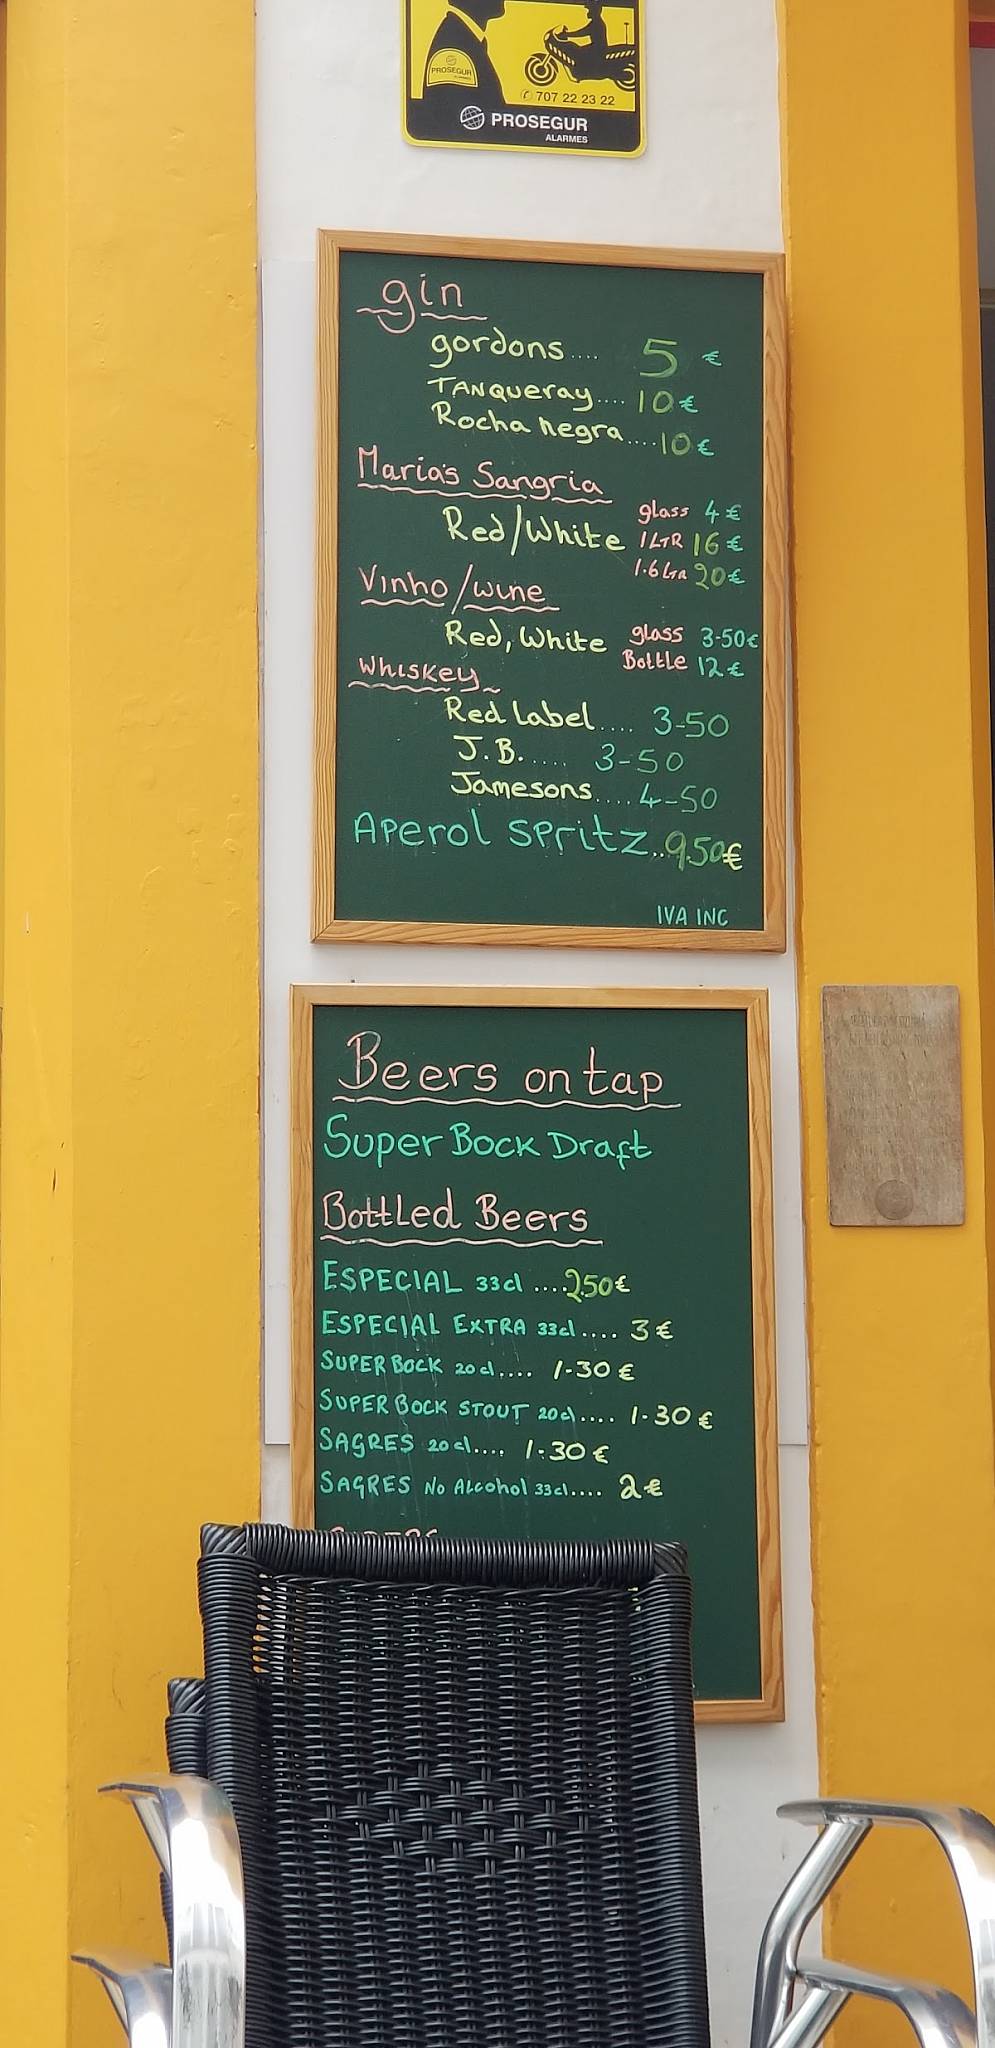 PROSEGUR
ALARMES
✆ 707 22 23 22
PROSEGUR
ALARMES
gin
gordons.... 5 €
TANQUERAY.... 10 €
Rocha negra....10 €
Maria's Sangria
glass 4 €
Red/White 1LTR 16 €
1.6Ltr 20 €
Vinho/wine
Red, White glass 3-50€
Bottle 12 €
Whiskey
Red Label.... 3-50
J.B..... 3-50
Jamesons.... 4-50
APeroL SPritZ..9.50€
IVA INC
Beers on tap
Super Bock Draft
Bottled Beers
ESPECIAL 33cl ....2.50€
ESPECIAL EXTRA 33cl.... 3 €
SUPER BOCK 20cl.... 1-30 €
SUPER BOCK STOUT 20cl.... 1-30 €
SAGRES 20cl.... 1-30 €
SAGRES No Alcohol 33cl.... 2 €